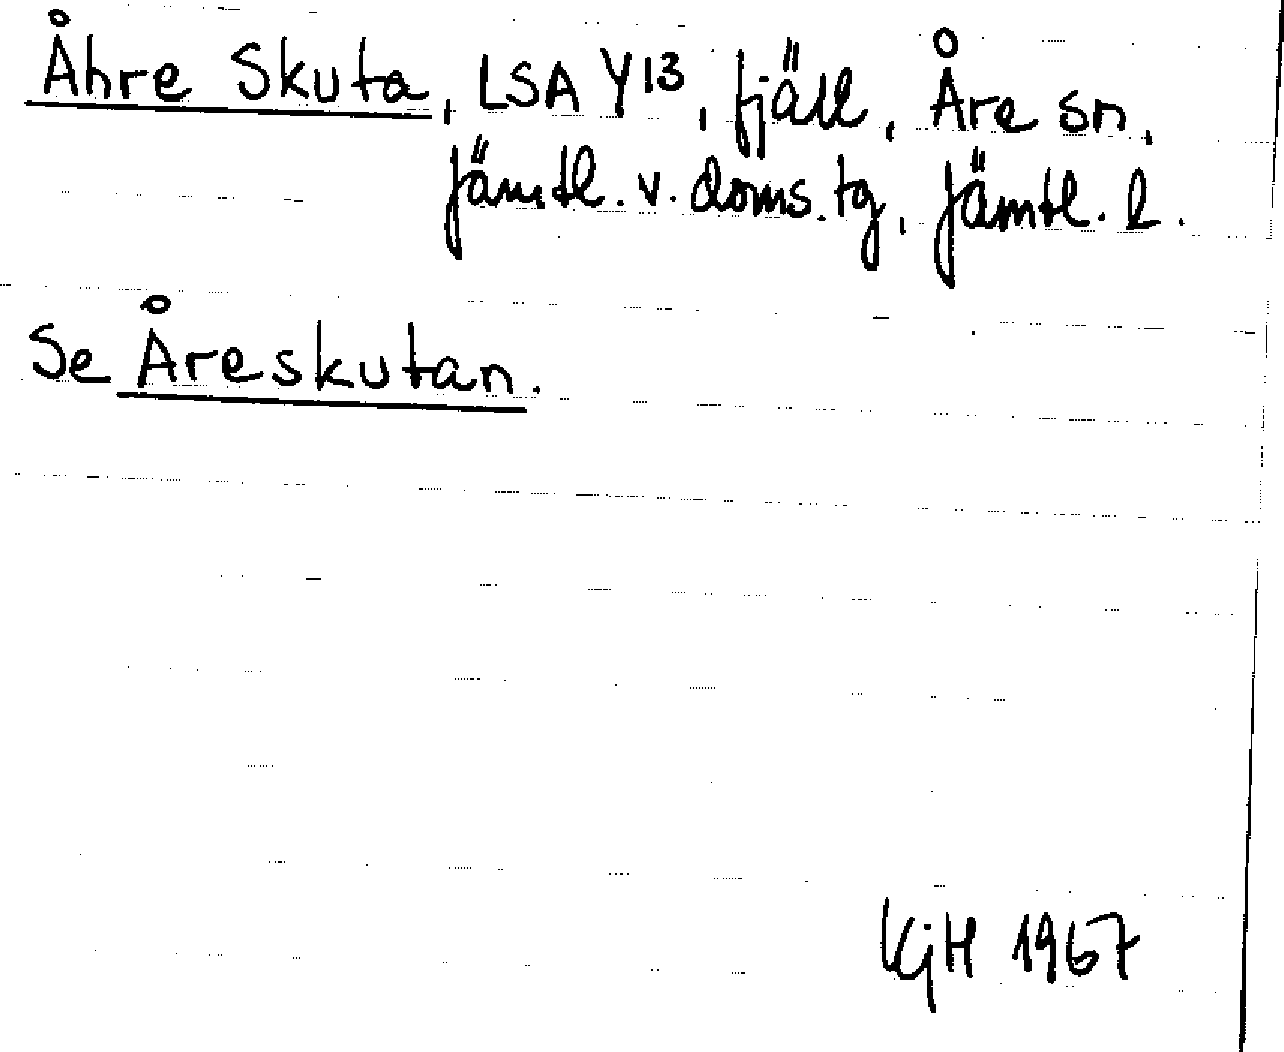 Åhre Skuta, LSA Y13, fjäll, Åre sn,
Jämtl. v. doms. tg, Jämtl. l.
Se Åreskutan.
KjH 1967